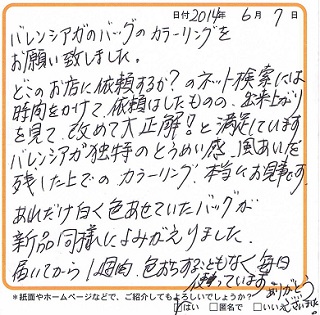 日付 2014年 6月 7日
バレンシアガのバッグのカラーリングを
お願い致しました。
どこのお店に依頼するか?のネット検索には
時間をかけて、依頼はしたものの、出来上がり
を見て、改めて大正解!と満足しています
バレンシアガ独特のとうめい感、風あいを
残した上でのカラーリング、本当にお見事です。
あれだけ白く色あせていたバッグが
新品同様によみがえりました。
届いてから1週間、色おちすることもなく毎日
使っています。ありがとう
ございました。
*紙面やホームページなどで、ご紹介してもよろしいでしょうか?
はい □匿名で □いいえ